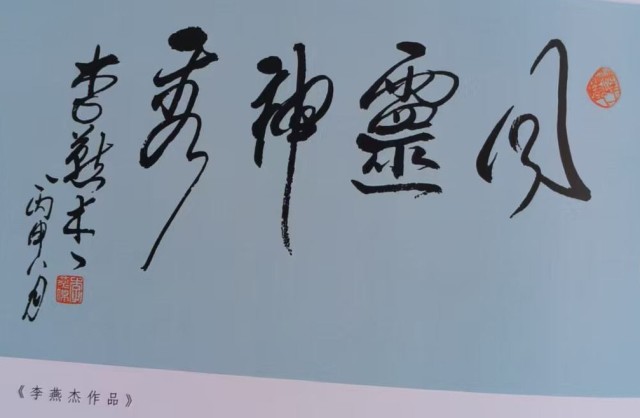 风靈神
李燕杰
丙申八月
《李燕杰作品》